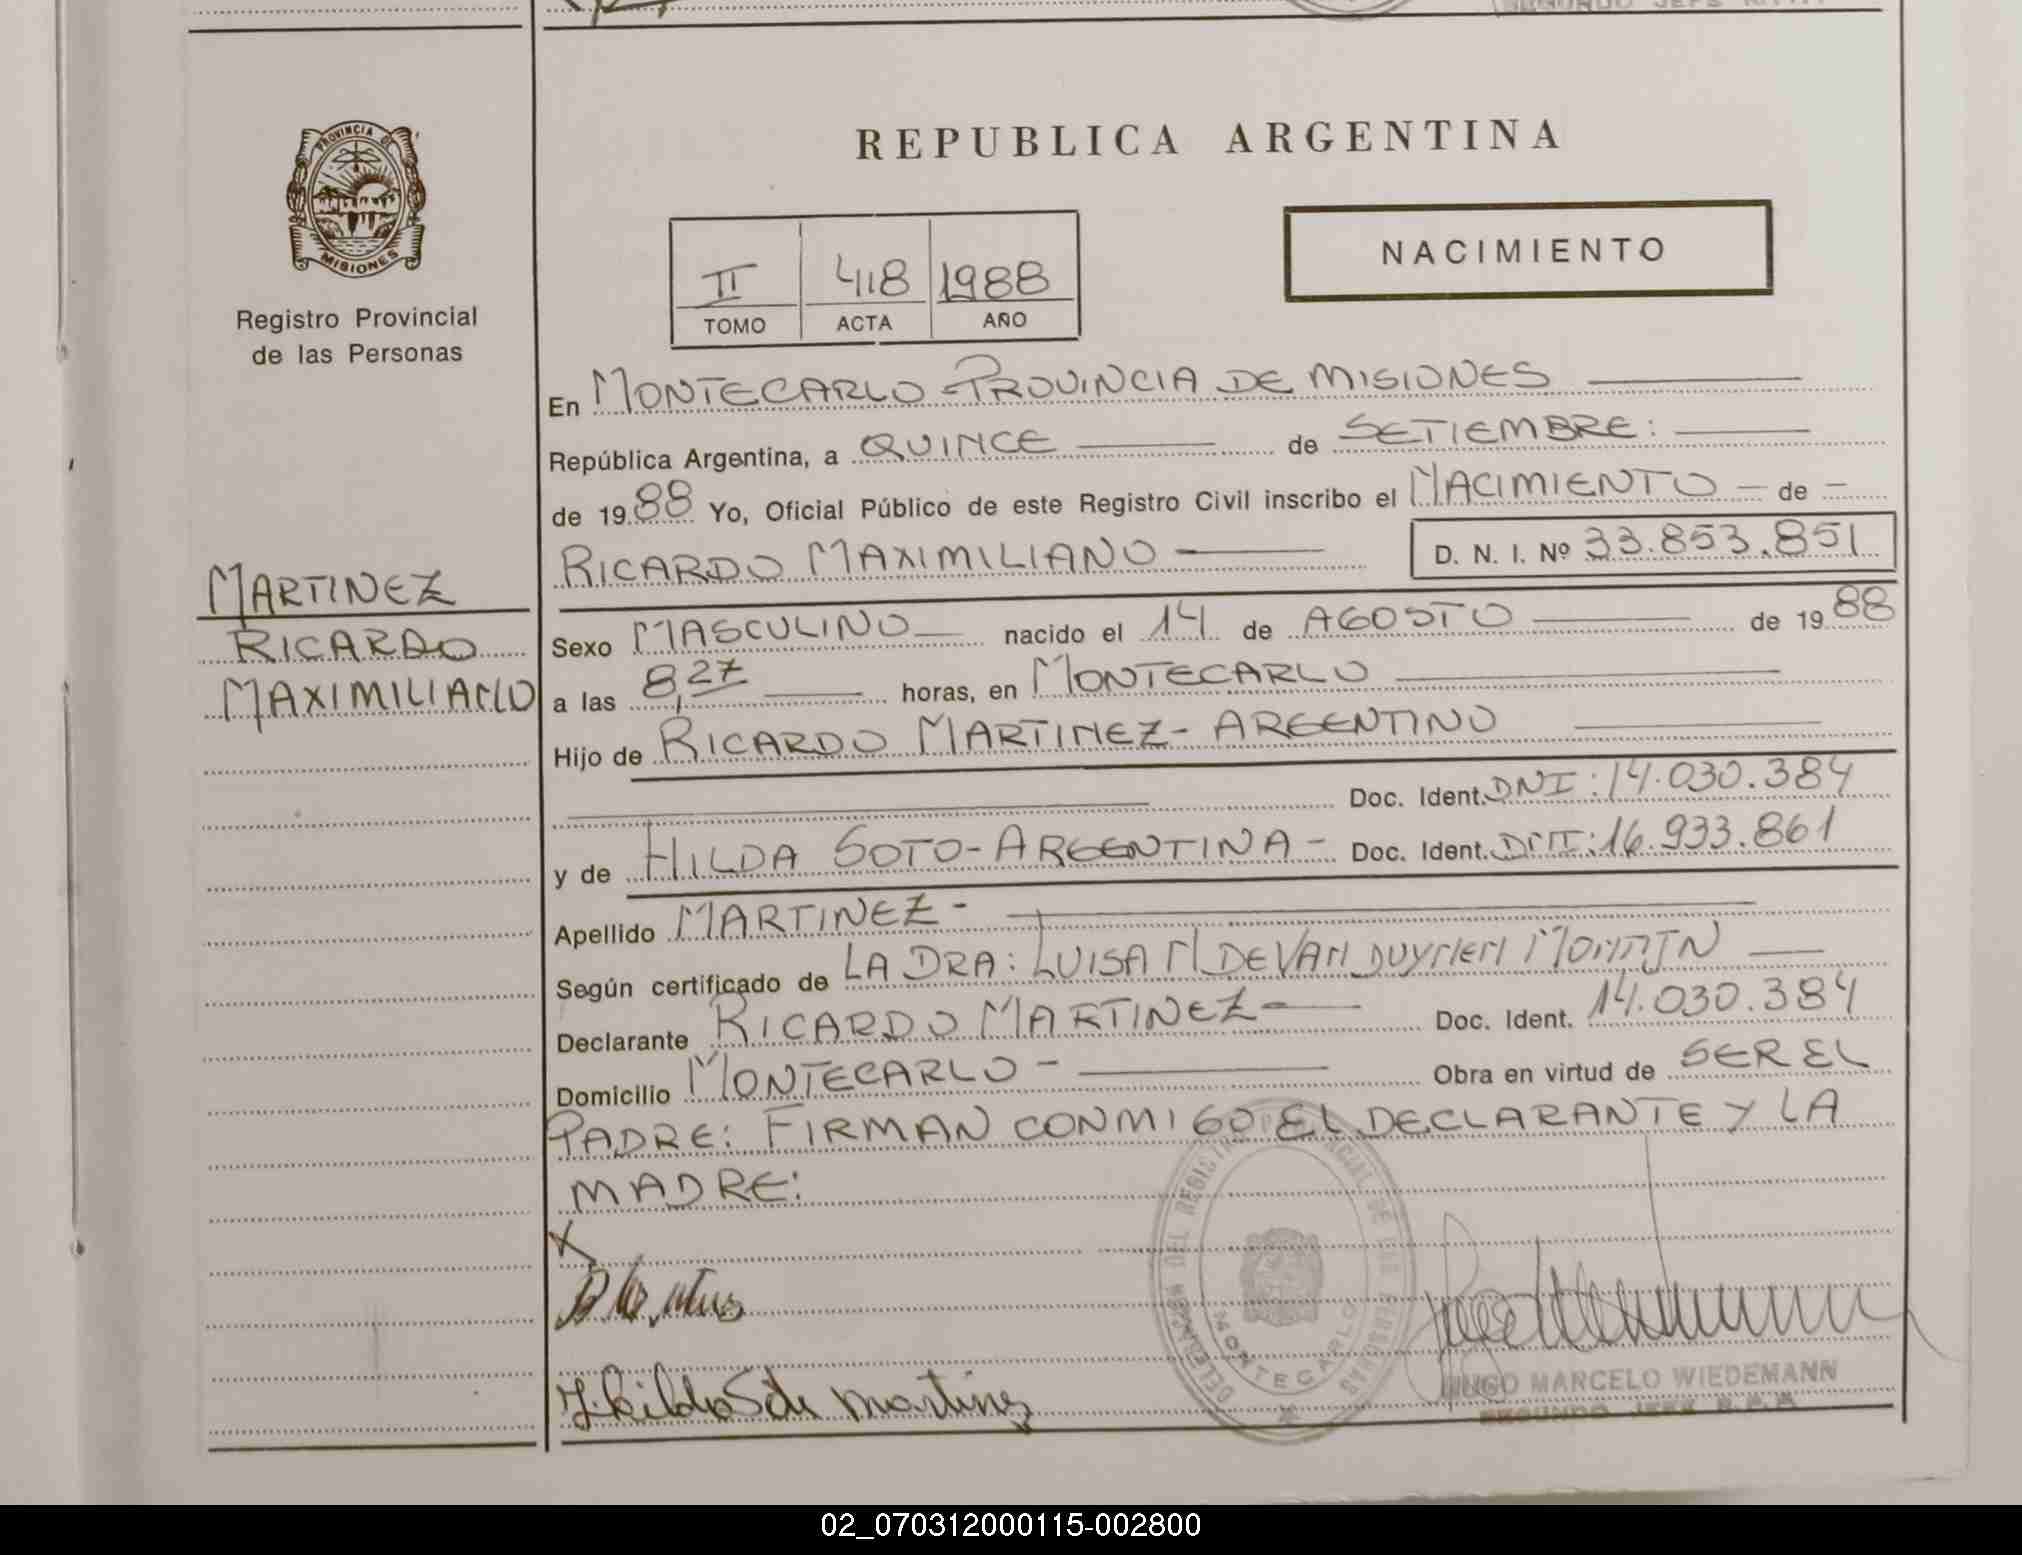 PROVINCIA DE
MISIONES
Registro Provincial
de las Personas
MARTINEZ
RICARDO
MAXIMILIANO
REPUBLICA ARGENTINA
II 418 1988
TOMO ACTA AÑO
NACIMIENTO
En MONTECARLO - PROVINCIA DE MISIONES
República Argentina, a QUINCE de SETIEMBRE:
de 1988 Yo, Oficial Público de este Registro Civil inscribo el NACIMIENTO - de -
RICARDO MAXIMILIANO D. N. I. Nº 33.853.851
Sexo MASCULINO nacido el 14 de AGOSTO de 1988
a las 8,27 horas, en MONTECARLO
Hijo de RICARDO MARTINEZ - ARGENTINO
Doc. Ident. DNI: 14.030.384
y de HILDA SOTO - ARGENTINA - Doc. Ident. DNI: 16.933.861
Apellido MARTINEZ -
Según certificado de LA DRA: LUISA DE VAN DUYNEN
Declarante RICARDO MARTINEZ - Doc. Ident. 14.030.384
Domicilio MONTECARLO - Obra en virtud de SER EL
PADRE: FIRMAN CONMIGO EL DECLARANTE Y LA
MADRE:
DEL REGISTRO PROVINCIAL DE LAS PERSONAS
MONTECARLO
HUGO MARCELO WIEDEMANN
SEGUNDO JEFE
02_070312000115-002800